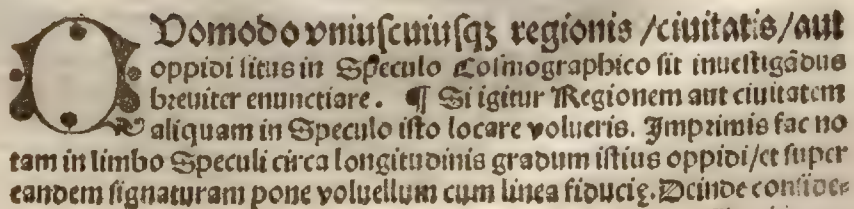 QVomodo vniuſcuiuſqꝫ regionis /ciuitatis/aut
oppidi ſitus in Speculo Coſmographico ſit inueſtigãdus
breuiter enunctiare. ¶ Si igitur Regionem aut ciuitatem
aliquam in Speculo iſto locare volueris. Imprimis fac no
tam in limbo Speculi circa longitudinis gradum iſtius oppidi/et ſuper
eandem ſignaturam pone voluellum cum linea fiducię. Deinde conſider⸗